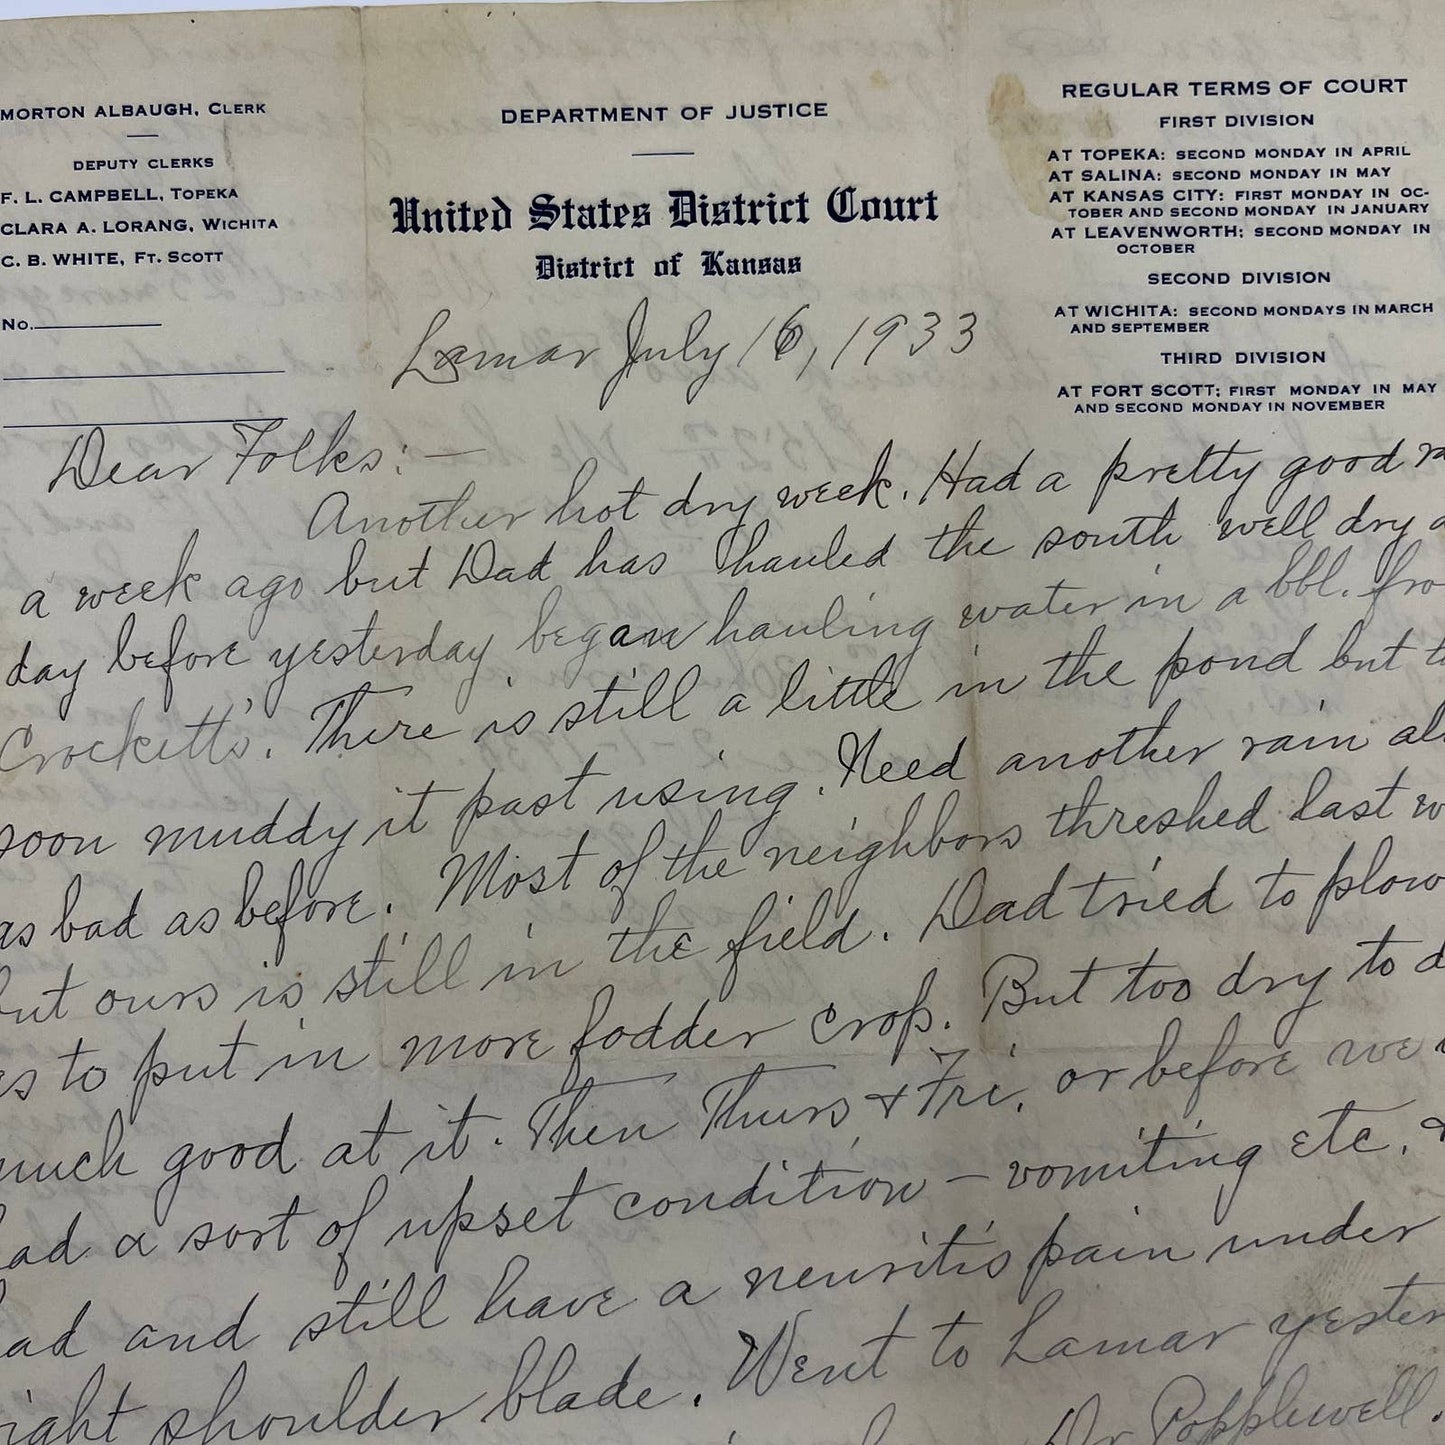 MORTON ALBAUGH, CLERK
DEPUTY CLERKS
F. L. CAMPBELL, TOPEKA
CLARA A. LORANG, WICHITA
C. B. WHITE, FT. SCOTT
No.
DEPARTMENT OF JUSTICE
United States District Court
District of Kansas
REGULAR TERMS OF COURT
FIRST DIVISION
AT TOPEKA: SECOND MONDAY IN APRIL
AT SALINA: SECOND MONDAY IN MAY
AT KANSAS CITY: FIRST MONDAY IN OC-
TOBER AND SECOND MONDAY IN JANUARY
AT LEAVENWORTH; SECOND MONDAY IN
OCTOBER
SECOND DIVISION
AT WICHITA: SECOND MONDAYS IN MARCH
AND SEPTEMBER
THIRD DIVISION
AT FORT SCOTT; FIRST MONDAY IN MAY
AND SECOND MONDAY IN NOVEMBER
Lamar July 16, 1933
Dear Folks:—
Another hot dry week. Had a pretty good
a week ago but Dad has hauled the south well dry
day before yesterday began hauling water in a bbl. fro
Crockett's. There is still a little in the pond but
soon muddy it past using. Need another rain
as bad as before. Most of the neighbors threshed last w
but ours is still in the field. Dad tried to plow
es to put in more fodder crop. But too dry to d
much good at it. Then Thurs & Fri. or before we
had a sort of upset condition — vomiting etc. &
had and still have a neuritis pain under
right shoulder blade. Went to Lamar yester
Dr Popplewell.